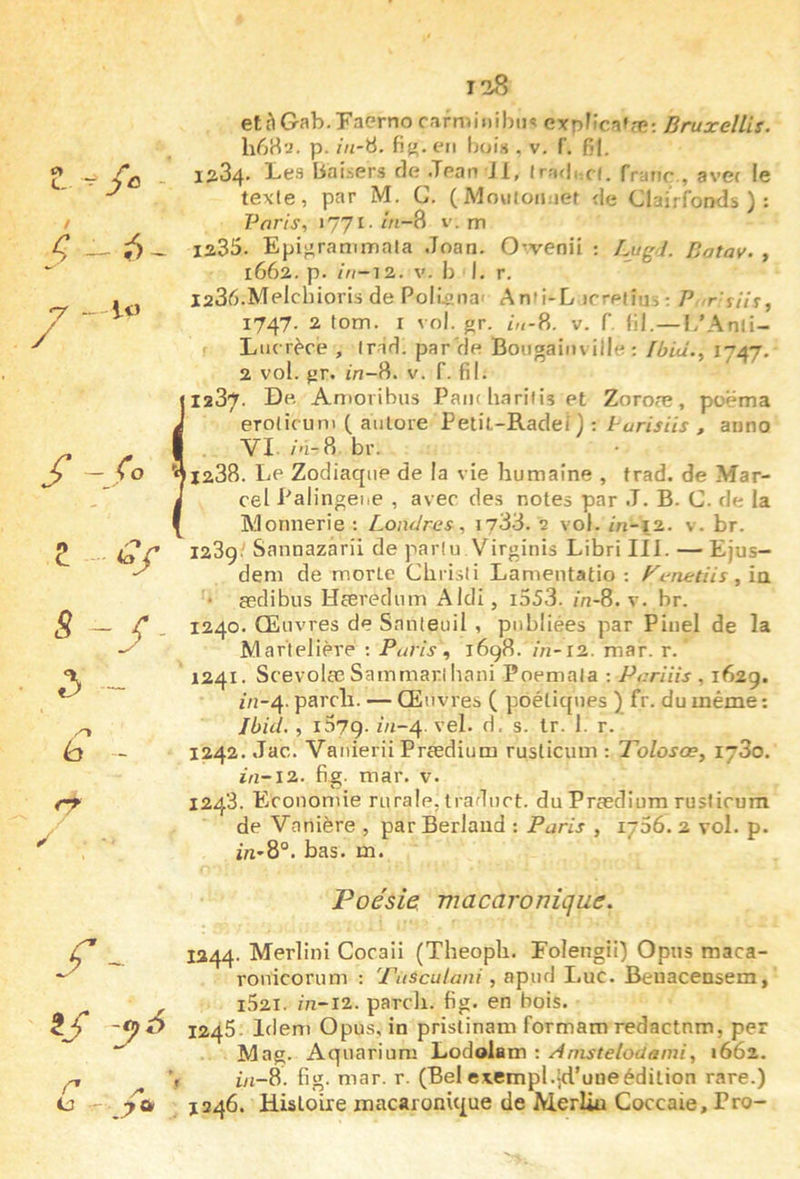 128
et à Gab. Faerno carminibus explicatæ: Bruxellis.
1682. p. in-8. fig. en bois, v. f. fil.
2 - 50 1234. Les Baisers de Jean II, traduct. franc., avec le
texte, par M. C. (Moutonnet de Clairfonds) :
Paris, 1771. in-8 v. m
5 — 6 - 1235. Epigrammata Joan. Owenii : Lugd. Batav.,
1662. p. in-12. v. b l. r.
7 - 10 1236. Melchioris de Polignac Anti-Lucretius : Parisiis,
1747. 2 tom. 1 vol. gr. in-8. v. f. fil.—L'Anti-
Lucrèce, trad. par de Bougainville : Ibid., 1747.
2 vol. gr. in-8. v. f. fil.
1237. De Amoribus Pancharitis et Zoroæ, poëma
eroticum ( autore Petit-Radel ) : Parisiis, anno
VI. in-8. br.
5 - 50 1238. Le Zodiaque de la vie humaine, trad. de Mar-
cel Palingene, avec des notes par J. B. C. de la
Monnerie : Londres, 1733. 2 vol. in-12. v. br.
2 1239. Sannazarii de partu Virginis Libri III. — Ejus-
dem de morte Christi Lamentatio : Venetiis, in
ædibus Hæredum Aldi, 1553. in-8. v. br.
8 - 5 1240. Œuvres de Santeuil, publiées par Pinel de la
Martelière : Paris, 1698. in-12. mar. r.
3 — 1241. Scevolæ Sammarthani Poemata : Pariiis, 1629.
in-4. parch. — Œuvres ( poétiques ) fr. du même :
Ibid., 1579. in-4. vel. d. s. tr. l. r.
6 - 1242. Jac. Vanierii Prædium rusticum : Tolosœ, 1730.
in-12. fig. mar. v.
7 1243. Economie rurale, traduct. du Prædium rusticum
de Vanière, par Berland : Paris, 1756. 2 vol. p.
in-8°. bas. m.
Poésie macaronique.
5 - 1244. Merlini Cocaii (Theoph. Folengii) Opus maca-
ronicorum : Tusculani, apud Luc. Benacensem,
1521. in-12. parch. fig. en bois.
25 - 1245. Idem Opus, in pristinam formam redactnm, per
Mag. Aquarium Lodolam : Amstelodami, 1662.
in-8. fig. mar. r. (Bel exempl. d'une édition rare.)
6 - 50 1246. Histoire macaronique de Merlin Coccaie, Pro-